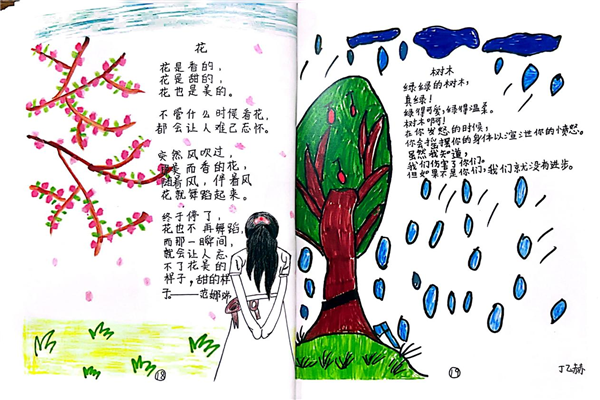 花
花是香的,
花是甜的,
花也是美的。
不管什么时候看花,
都会让人难已忘怀。
突然风吹过,
美而香的花,
随着风,伴着风
花就舞蹈起来。
终于停了,
花也不再舞蹈,
而那一瞬间,
就会让人忘
不了花美的
样子,甜的样
子。——范娜娜
18
树木
绿绿的树木,
真绿!
绿得可爱,绿得温柔。
树木啊!
在你发怒的时候,
你会摇摆你的身体以渲泄你的愤怒。
虽然我知道,
我们伤害了你们。
但如果不是你们,我们就没有进步。
19
丁乙赫